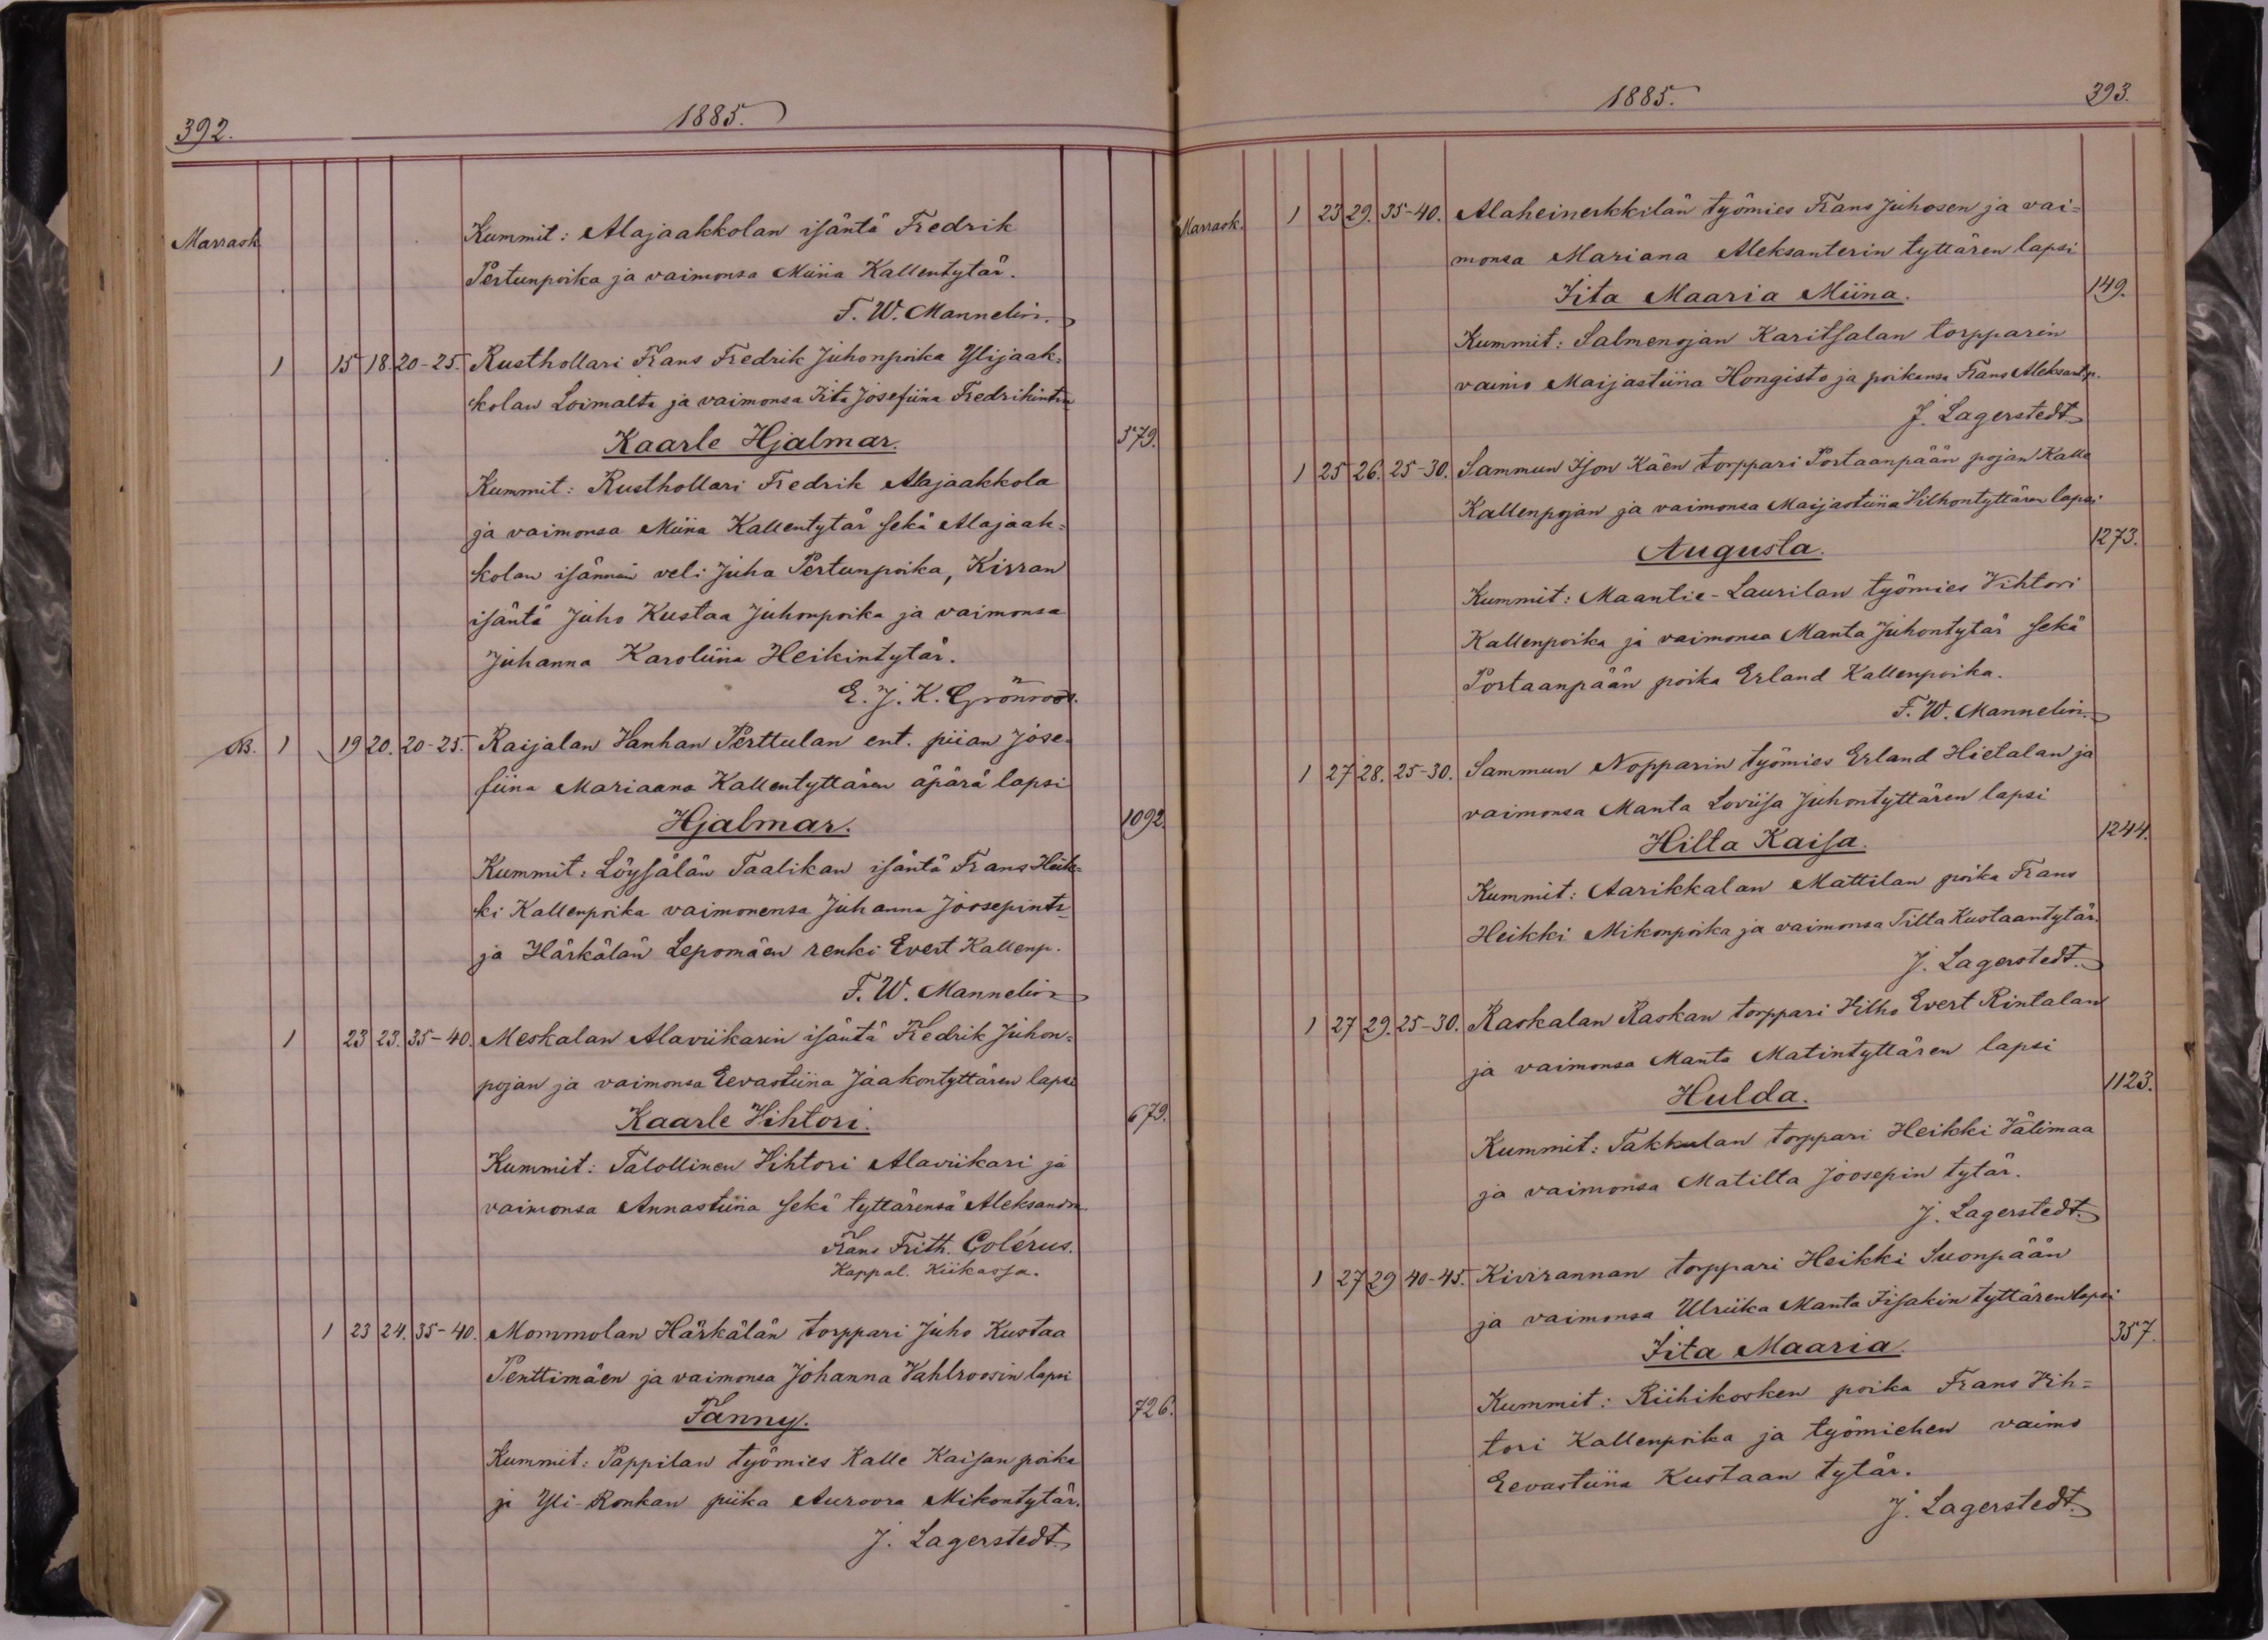 392.
1885.
Marrask.
Kummit: Alajaakkolan isäntä Fredrik
Pertunpoika ja vaimonsa Miina Kallentytär.
F. W. Mannelin.
1 15 18. 20-25. Rusthollari Frans Fredrik Juhonpoika Ylijaak=
kolan Loimalta ja vaimonsa Iita Josefiina Fredrikintr
Kaarle Hjalmar. 579.
Kummit: Rusthollari Fredrik Alajaakkola
ja vaimonsa Miina Kallentytär sekä Alajaak=
kolan isännän veli Juha Pertunpoika, Kirran
isäntä Juho Kustaa Juhonpoika ja vaimonsa
Juhanna Karoliina Heikintytär.
E. J. K. Grönroos.
1 19 20. 20-25. Raijalan Vanhan Perttulan ent. piian Jose-
fiina Mariaana Kallentyttären äpärä lapsi
Hjalmar. 1092.
Kummit: Löysälän Taalikan isäntä Frans Heik=
ki Kallenpoika vaimonensa Juhanna Joosepintr
ja Härkälän Lepomäen renki Evert Kallenp.
F. W. Mannelin
1 23 23. 35-40. Meskalan Alaviikarin isäntä Fredrik Juhon=
pojan ja vaimonsa Eevastiina Jaakontyttären lapsi
Kaarle Vihtori. 679.
Kummit: Talollinen Vihtori Alaviikari ja
vaimonsa Annastiina sekä tyttärensä Aleksandra.
Frans Frith. Colérus.
Kappal. Kiikassa.
1 23 24. 35-40. Mommolan Härkälän torppari Juho Kustaa
Penttimäen ja vaimonsa Johanna Vahlroosin lapsi
Fanny. 726.
Kummit: Pappilan työmies Kalle Kaisanpoika
ja Yli-Ronkan piika Auroora Mikontytär.
J. Lagerstedt.
1885.
393.
Marrask. 1 23 29. 35-40. Alaheinerkkilän työmies Frans Juhosen ja vai=
monsa Mariana Aleksanterin tyttären lapsi
Iita Maaria Miina. 149.
Kummit: Salmenojan Karitsalan torpparin
vaimo Maijastiina Hongisto ja poikansa Frans Aleksantp.
J. Lagerstedt
1 25 26. 25-30. Sammun Ison Käen torppari Portaanpään pojan Kalle
Kallenpojan ja vaimonsa Maijastiina Vilhontyttären lapsi
Augusta. 1273.
Kummit: Maantie-Laurilan työmies Vihtori
Kallenpoika ja vaimonsa Manta Juhontytär sekä
Portaanpään poika Erland Kallenpoika.
F. W. Mannelin.
1 27 28. 25-30. Sammun Nopparin työmies Erland Hietalan ja
vaimonsa Manta Loviisa Juhontyttären lapsi
Hilta Kaisa. 1244.
Kummit: Aarikkalan Mattilan poika Frans
Heikki Mikonpoika ja vaimonsa Tilta Kustaantytär.
J. Lagerstedt.
1 27 29. 25-30. Raskalan Raskan torppari Vilho Evert Rintalan
ja vaimonsa Manta Matintyttären lapsi
Hulda. 1123.
Kummit: Takkulan torppari Heikki Välimaa
ja vaimonsa Matilta Joosepin tytär.
J. Lagerstedt.
1 27 29 40-45. Kivirannan torppari Heikki Suonpään
ja vaimonsa Ulriika Manta Iisakin tyttären lapsi
Iita Maaria. 357.
Kummit: Riihikosken poika Frans Vih=
tori Kallenpoika ja työmiehen vaimo
Eevastiina Kustaan tytär.
J. Lagerstedt.